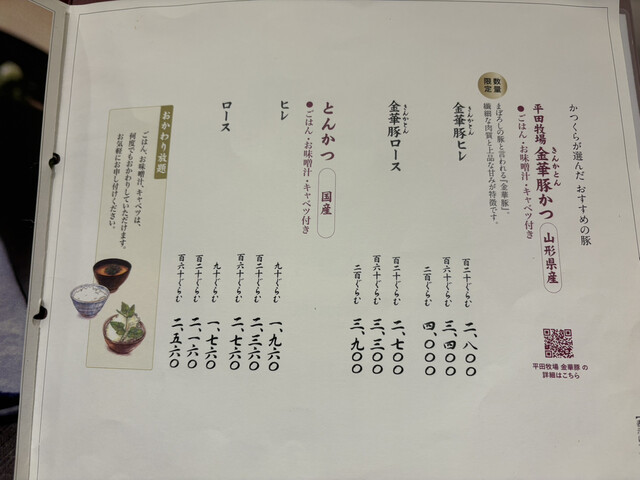 かつくらが選んだ おすすめの豚
数量限定
平田牧場 金華豚かつ 山形県産
きんかとん
●ごはん・お味噌汁・キャベツ付き
まぼろしの豚と言われる『金華豚』。
繊細な肉質と上品な甘みが特徴です。
金華豚ヒレ
きんかとん
百二十ぐらむ 二、八〇〇
百六十ぐらむ 三、四〇〇
二百ぐらむ 四、〇〇〇
金華豚ロース
きんかとん
百二十ぐらむ 二、七〇〇
百六十ぐらむ 三、三〇〇
二百ぐらむ 三、九〇〇
平田牧場 金華豚 の
詳細はこちら
とんかつ 国産
●ごはん・お味噌汁・キャベツ付き
ヒレ
九十ぐらむ 一、九六〇
百二十ぐらむ 二、三六〇
百六十ぐらむ 二、七六〇
ロース
九十ぐらむ 一、七六〇
百二十ぐらむ 二、一六〇
百六十ぐらむ 二、五六〇
おかわり放題
ごはん、お味噌汁、キャベツは、
何度でもおかわりしていただけます。
お気軽にお申し付けください。